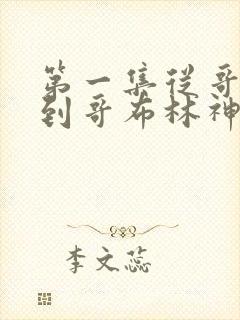 第一集從哥
到哥布林神
李文蕊